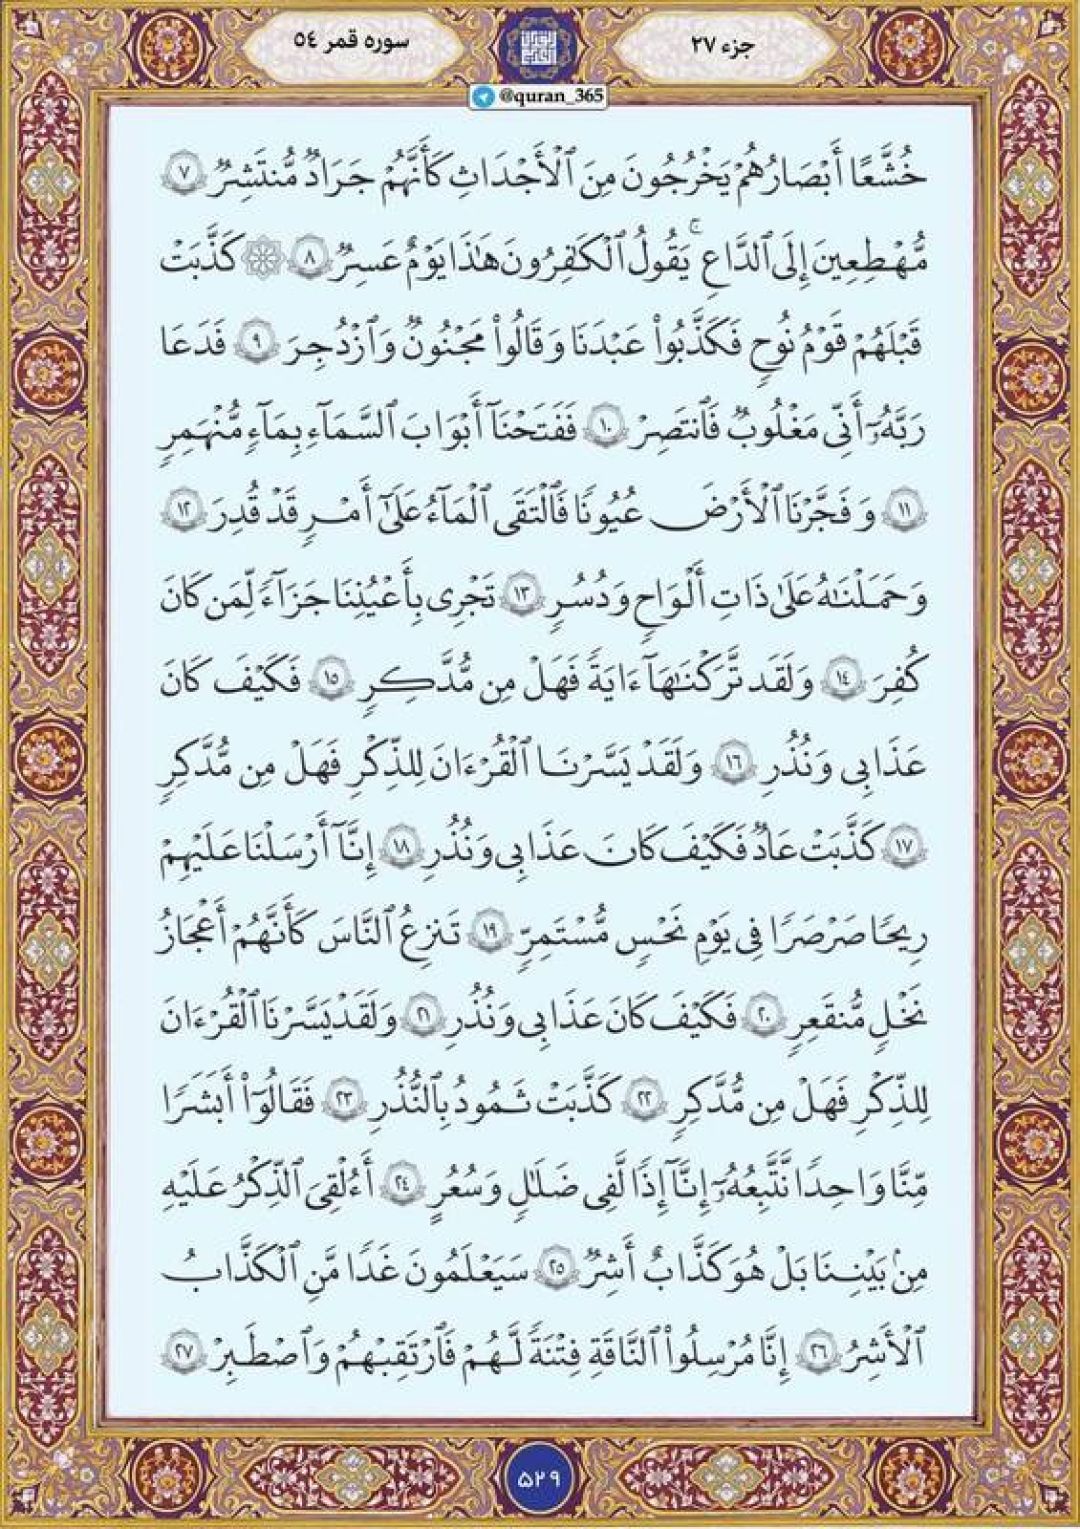 سوره قمر ٥٤
جزء ٢٧
@quran_365
خُشَّعًا أَبْصَارُهُمْ يَخْرُجُونَ مِنَ ٱلْأَجْدَاثِ كَأَنَّهُمْ جَرَادٌ مُّنتَشِرٌ ٧
مُّهْطِعِينَ إِلَى ٱلدَّاعِ ۖ يَقُولُ ٱلْكَٰفِرُونَ هَٰذَا يَوْمٌ عَسِرٌ ٨ ۞ كَذَّبَتْ
قَبْلَهُمْ قَوْمُ نُوحٍ فَكَذَّبُوا۟ عَبْدَنَا وَقَالُوا۟ مَجْنُونٌ وَٱزْدُجِرَ ٩ فَدَعَا
رَبَّهُۥٓ أَنِّى مَغْلُوبٌ فَٱنتَصِرْ ١٠ فَفَتَحْنَآ أَبْوَٰبَ ٱلسَّمَآءِ بِمَآءٍ مُّنْهَمِرٍ
١١ وَفَجَّرْنَا ٱلْأَرْضَ عُيُونًا فَٱلْتَقَى ٱلْمَآءُ عَلَىٰٓ أَمْرٍ قَدْ قُدِرَ ١٢
وَحَمَلْنَٰهُ عَلَىٰ ذَاتِ أَلْوَٰحٍ وَدُسُرٍ ١٣ تَجْرِى بِأَعْيُنِنَا جَزَآءً لِّمَن كَانَ
كُفِرَ ١٤ وَلَقَد تَّرَكْنَٰهَآ ءَايَةً فَهَلْ مِن مُّدَّكِرٍ ١٥ فَكَيْفَ كَانَ
عَذَابِى وَنُذُرِ ١٦ وَلَقَدْ يَسَّرْنَا ٱلْقُرْءَانَ لِلذِّكْرِ فَهَلْ مِن مُّدَّكِرٍ
١٧ كَذَّبَتْ عَادٌ فَكَيْفَ كَانَ عَذَابِى وَنُذُرِ ١٨ إِنَّآ أَرْسَلْنَا عَلَيْهِمْ
رِيحًا صَرْصَرًا فِى يَوْمِ نَحْسٍ مُّسْتَمِرٍّ ١٩ تَنزِعُ ٱلنَّاسَ كَأَنَّهُمْ أَعْجَازُ
نَخْلٍ مُّنقَعِرٍ ٢٠ فَكَيْفَ كَانَ عَذَابِى وَنُذُرِ ٢١ وَلَقَدْ يَسَّرْنَا ٱلْقُرْءَانَ
لِلذِّكْرِ فَهَلْ مِن مُّدَّكِرٍ ٢٢ كَذَّبَتْ ثَمُودُ بِٱلنُّذُرِ ٢٣ فَقَالُوٓا۟ أَبَشَرًا
مِّنَّا وَٰحِدًا نَّتَّبِعُهُۥٓ إِنَّآ إِذًا لَّفِى ضَلَٰلٍ وَسُعُرٍ ٢٤ أَءُلْقِىَ ٱلذِّكْرُ عَلَيْهِ
مِنۢ بَيْنِنَا بَلْ هُوَ كَذَّابٌ أَشِرٌ ٢٥ سَيَعْلَمُونَ غَدًا مَّنِ ٱلْكَذَّابُ
ٱلْأَشِرُ ٢٦ إِنَّا مُرْسِلُوا۟ ٱلنَّاقَةِ فِتْنَةً لَّهُمْ فَٱرْتَقِبْهُمْ وَٱصْطَبِرْ ٢٧
۵۲۹